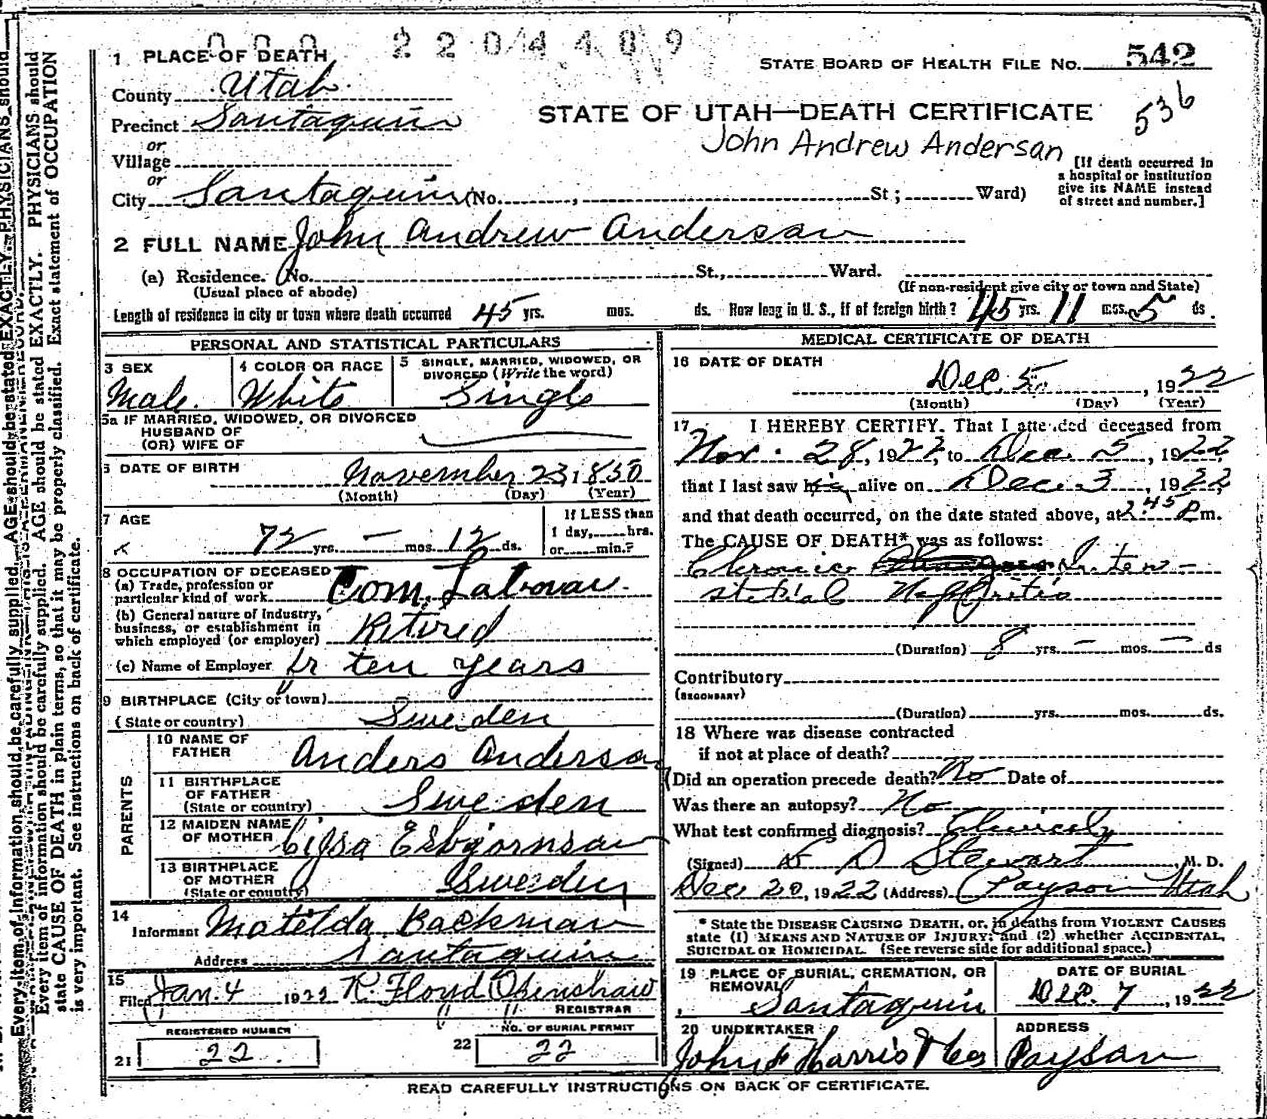 000 2204489
1 PLACE OF DEATH
STATE BOARD OF HEALTH FILE No. 542
County Utah
STATE OF UTAH—DEATH CERTIFICATE
536
Precinct Santaquin
John Andrew Andersan
or
Village
[If death occurred in
a hospital or institution
give its NAME instead
of street and number.]
or
City Santaquin (No. , St ; Ward)
2 FULL NAME John Andrew Anderson
(a) Residence. No. St., Ward.
(Usual place of abode)
(If non-resident give city or town and State)
Length of residence in city or town where death occurred 45 yrs. mos. ds. How long in U. S., if of foreign birth? 45 yrs. 11 mos. 5 ds.
PERSONAL AND STATISTICAL PARTICULARS
3 SEX
Male
4 COLOR OR RACE
White
5 SINGLE, MARRIED, WIDOWED, OR
DIVORCED (Write the word)
Single
5a IF MARRIED, WIDOWED, OR DIVORCED
HUSBAND OF
(OR) WIFE OF
6 DATE OF BIRTH
November 23, 1850
(Month) (Day) (Year)
7 AGE
72 yrs. – mos. 12 ds.
If LESS than
1 day, hrs.
or min.?
8 OCCUPATION OF DECEASED
(a) Trade, profession or
particular kind of work Com. Laborar
(b) General nature of Industry,
business, or establishment in
which employed (or employer) Retired
(c) Name of Employer fr ten years
9 BIRTHPLACE (City or town)
(State or country) Sweden
PARENTS
10 NAME OF
FATHER Anders Anderson
11 BIRTHPLACE
OF FATHER
(State or country) Sweden
12 MAIDEN NAME
OF MOTHER Esbjornson
13 BIRTHPLACE
OF MOTHER
(State or country) Sweden
14
Informant Matilda Backman
Address Santaquin
15
Filed Jan. 4 1922 R. Floyd Openshaw
REGISTRAR
REGISTERED NUMBER
21 22.
NO. OF BURIAL PERMIT
22 22
MEDICAL CERTIFICATE OF DEATH
16 DATE OF DEATH
Dec. 5, 1922
(Month) (Day) (Year)
17 I HEREBY CERTIFY, That I attended deceased from
Nov. 28, 1922, to Dec. 5, 1922,
that I last saw him alive on Dec. 3, 1922,
and that death occurred, on the date stated above, at 2:45 P.m.
The CAUSE OF DEATH* was as follows:
Chronic Inter-
stitial Nephritis
(Duration) 8 yrs. – mos. – ds
Contributory
(SECONDARY)
(Duration) yrs. mos. ds.
18 Where was disease contracted
if not at place of death?
Did an operation precede death? No Date of
Was there an autopsy? No
What test confirmed diagnosis? Clinicely
(Signed) D Stewart, M. D.
Dec 20, 1922 (Address) Payson Utah
* State the DISEASE CAUSING DEATH, or, in deaths from VIOLENT CAUSES
state (1) MEANS AND NATURE OF INJURY; and (2) whether ACCIDENTAL,
SUICIDAL OR HOMICIDAL. (See reverse side for additional space.)
19 PLACE OF BURIAL, CREMATION, OR
REMOVAL
Santaquin
DATE OF BURIAL
Dec. 7, 1922
20 UNDERTAKER
John F Harris & Co
ADDRESS
Paysan
READ CAREFULLY INSTRUCTIONS ON BACK OF CERTIFICATE.
Every item of information should be carefully supplied. AGE should be stated EXACTLY. PHYSICIANS should
state CAUSE OF DEATH in plain terms, so that it may be properly classified. Exact statement of OCCUPATION
is very important. See instructions on back of certificate.